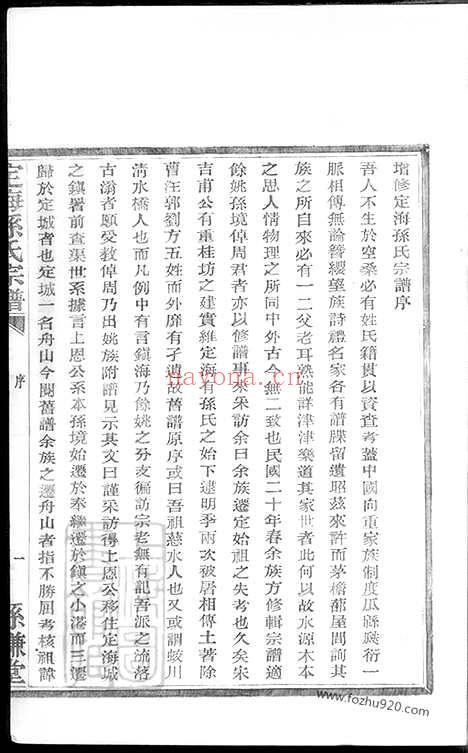 增修定海孫氏宗譜序
吾人不生於空桑必有姓氏籍貫以資查考蓋中國向重家族制度瓜緜瓞衍一
脈相傳無論簪纓望族詩禮名家各有譜牒留遺昭茲來許而茅檐蔀屋間詢其
族之所自來必有一二父老耳熟能詳津津樂道其家世者此何以故水源木本
之思人情物理之所同中外古今無二致也民國二十年春余族方修輯宗譜適
餘姚孫境倬周君者亦以修譜事來采訪余曰余族遷定始祖之失考也久矣宋
吉甫公有重桂坊之建實維定海有孫氏之始下逮明季兩次被屠相傳土著除
曹汪郭劉方五姓而外靡有孑遺故舊譜原序或曰吾祖慈水人也又或謂蛟川
清水橋人也而凡例中有言鎮海乃餘姚之分支徧訪宗老無有記吾派之流落
古滃者願受教倬周乃出姚族附譜見示其文曰謹采訪得上恩公移住定海城
之鎮署前查渠世系據言上恩公系本孫境始遷於奉繼遷於鎮之小港而三遷
歸於定城者也定城一名舟山今閱舊譜余族之遷舟山者指不勝屈考核祖諱
定海孫氏宗譜
序
一
孫謙堂
nayona.cn
www.fozhu920.com